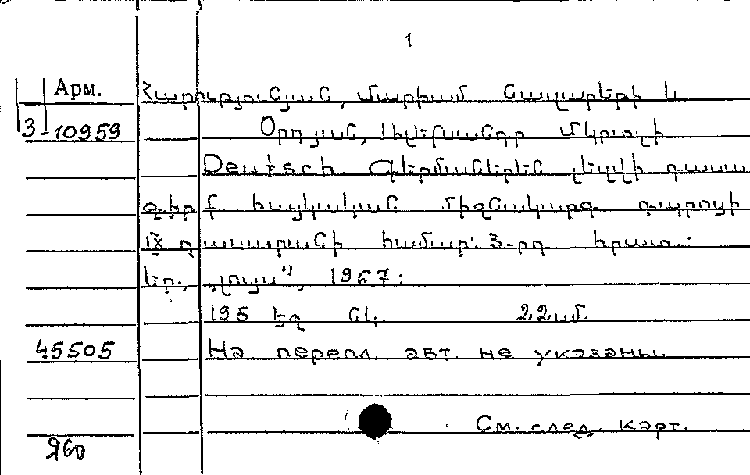 1
Арм. Հարությունյան, Մարիամ Նազարեթի և
3-10959 Օրդյան, Ալեքսանդր Մկրտչի
Deutsch. Գերմաներեն լեզվի դասա
գիրք հայկական միջնակարգ դպրոցի
IX դասարանի համար: 3-րդ հրատ.:
Եր., „Լույս", 1967:
195 էջ նկ. 22սմ.
45505 На перепл. авт. не указаны.
См. след. карт.
Я60